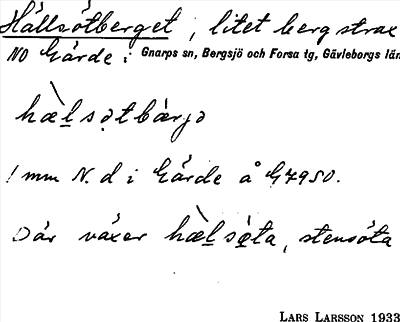 Hällsötberget, litet berg strax
NO Gärde i Gnarps sn, Bergsjö och Forsa tg, Gävleborgs län
hæ̀l̲sə̣tbærjə
1 mm N. d i Gärde å G7950.
Där växer hæ̀l̲sø̣ta, stensöta
LARS LARSSON 1933